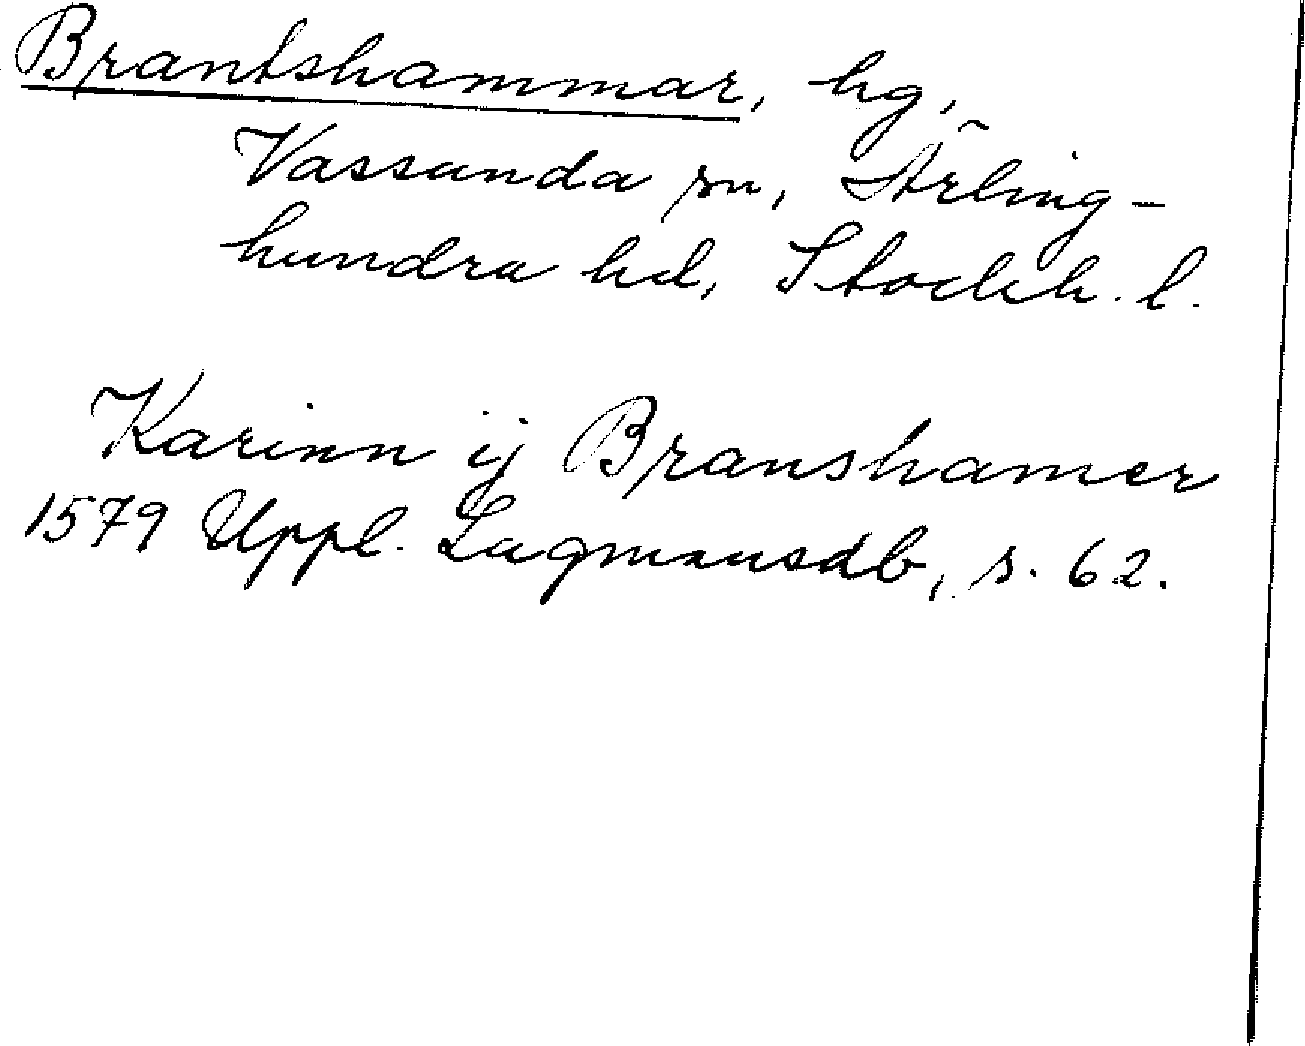 Brantshammar, hg,
Vassunda sn, Ärling-
hundra hd, Stockh. l.
Karinn ij Branshamer
1579 Uppl. Lagmansdb, s. 62.